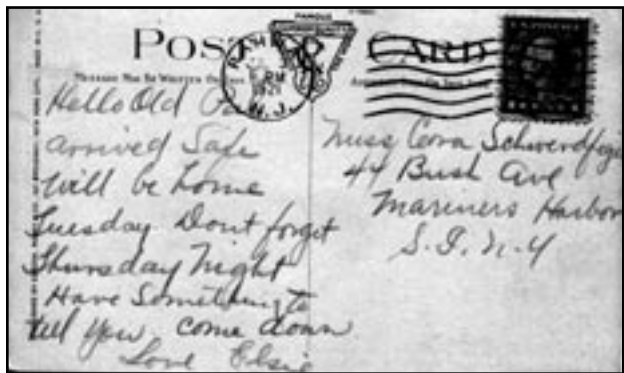 POST CARD
FAMOUS
RAMSEY
PM
1921
N.J.
Hello Old Pal
arrived Safe
will be home
Tuesday Dont forget
Thursday Night
Have Something to
tell you come down
Love Elsie
Miss Cora
44 Bush Ave
Mariners Harbor
S. I. N-Y